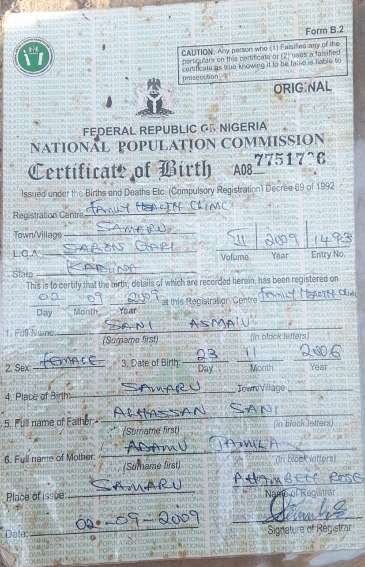 Form B.2
CAUTION: Any person who (1) Falsifies any of the
particulars on this certificate or (2) uses a falsified
certificate as true knowing it to be false is liable to
prosecution
ORIGINAL
FEDERAL REPUBLIC OF NIGERIA
NATIONAL POPULATION COMMISSION
Certificate of Birth A08
Issued under the Births and Deaths Etc. (Compulsory Registration) Decree 69 of 1992
Registration Centre FAMILY HEALTH CLINIC
Town/Village SAMARU
L.G.A. SABON GARI II 2009 1493
State KADUNA Volume Year Entry No.
This is to certify that the birth, details of which are recorded herein, has been registered on
02 09 2009 at this Registration Centre Family Health Clinic
Day Month Year
1. Full Name SANI ASMAU
(Surname first) (in block letters)
2. Sex FEMALE 3. Date of Birth: 23 11 2006
Day Month Year
4. Place of Birth: SAMARU Town/Village
5. Full name of Father: ALHASSAN SANI
(Surname first) (in block letters)
6. Full name of Mother: ADAMU JAMILA
(Surname first) (in block letters)
Place of issue: SAMARU ROSE
Name of Registrar
Date: 02-09-2009 Signature of Registrar